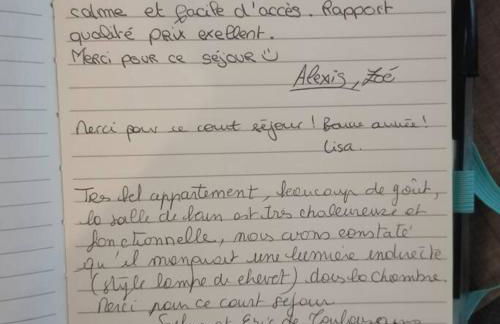 calme et facile d'accès. Rapport
qualité prix exellent.
Merci pour ce séjour
Alexis, Zoé
Merci pour ce court séjour ! Bonne année !
Lisa.
Tres bel appartement, beaucoup de goût,
la salle de bain est très chaleureuse et
fonctionnelle, nous avons constaté
qu'il manquait une lumière indirecte
(style lampe de chevet) dans la chambre.
Merci pour ce court séjour
et Eric de